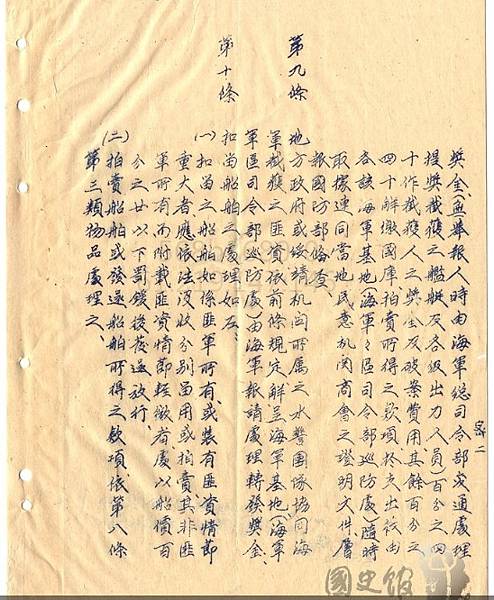 獎金(無舉報人時由海軍總司令部交通處理
提獎截獲之艦艇及各級出力人員)百分之四
十作截獲人之獎金及破案費用其餘百分之
四十解繳國庫拍賣所得之款項於支出後由
各該海軍基地(海軍軍區司令部巡防處)隨時
取據連同當地民意机関商會之證明文件層
報國防部條受
第九條
地方政府或綏靖机関所屬之水警團隊協同海
軍截獲之匪資依前條規定解呈海軍基地(海軍
軍區司令部巡防處)由海軍報請處理轉發獎金
第十條
扣尚船舶之處理如左
(一)扣留之船舶如係匪軍所有或裝有匪資情節
重大者應依法沒收分别留用或拍賣其非匪
軍所有而附載匪資情節輕微者處以船價百
分之廿以下罰鍰後發還放行
(二)拍賣船舶或發還船舶所得之款項依第八條
第三類物品處理之
二
國史館